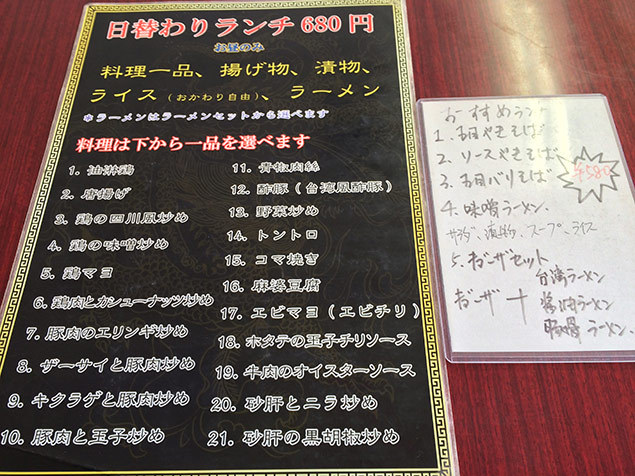 日替わりランチ 680円
お昼のみ
料理一品、揚げ物、漬物、
ライス（おかわり自由）、ラーメン
※ラーメンはラーメンセットから選べます
料理は下から一品を選べます
1. 油淋鶏
2. 唐揚げ
3. 鶏の四川風炒め
4. 鶏の味噌炒め
5. 鶏マヨ
6. 鶏肉とカシューナッツ炒め
7. 豚肉のエリンギ炒め
8. ザーサイと豚肉炒め
9. キクラゲと豚肉炒め
10. 豚肉と玉子炒め
11. 青椒肉絲
12. 酢豚（台湾風酢豚）
13. 野菜炒め
14. トントロ
15. コマ焼き
16. 麻婆豆腐
17. エビマヨ（エビチリ）
18. ホタテの玉子チリソース
19. 牛肉のオイスターソース
20. 砂肝とニラ炒め
21. 砂肝の黒胡椒炒め
おすすめラ
1. 五目やきそば
2. ソースやきそば
3. 五目バリそば
¥580
4. 味噌ラーメン
サラダ、漬物、スープ、ライス
5. ギョーザセット
ギョーザ +
台湾ラーメン
醤油ラーメン
ラーメン